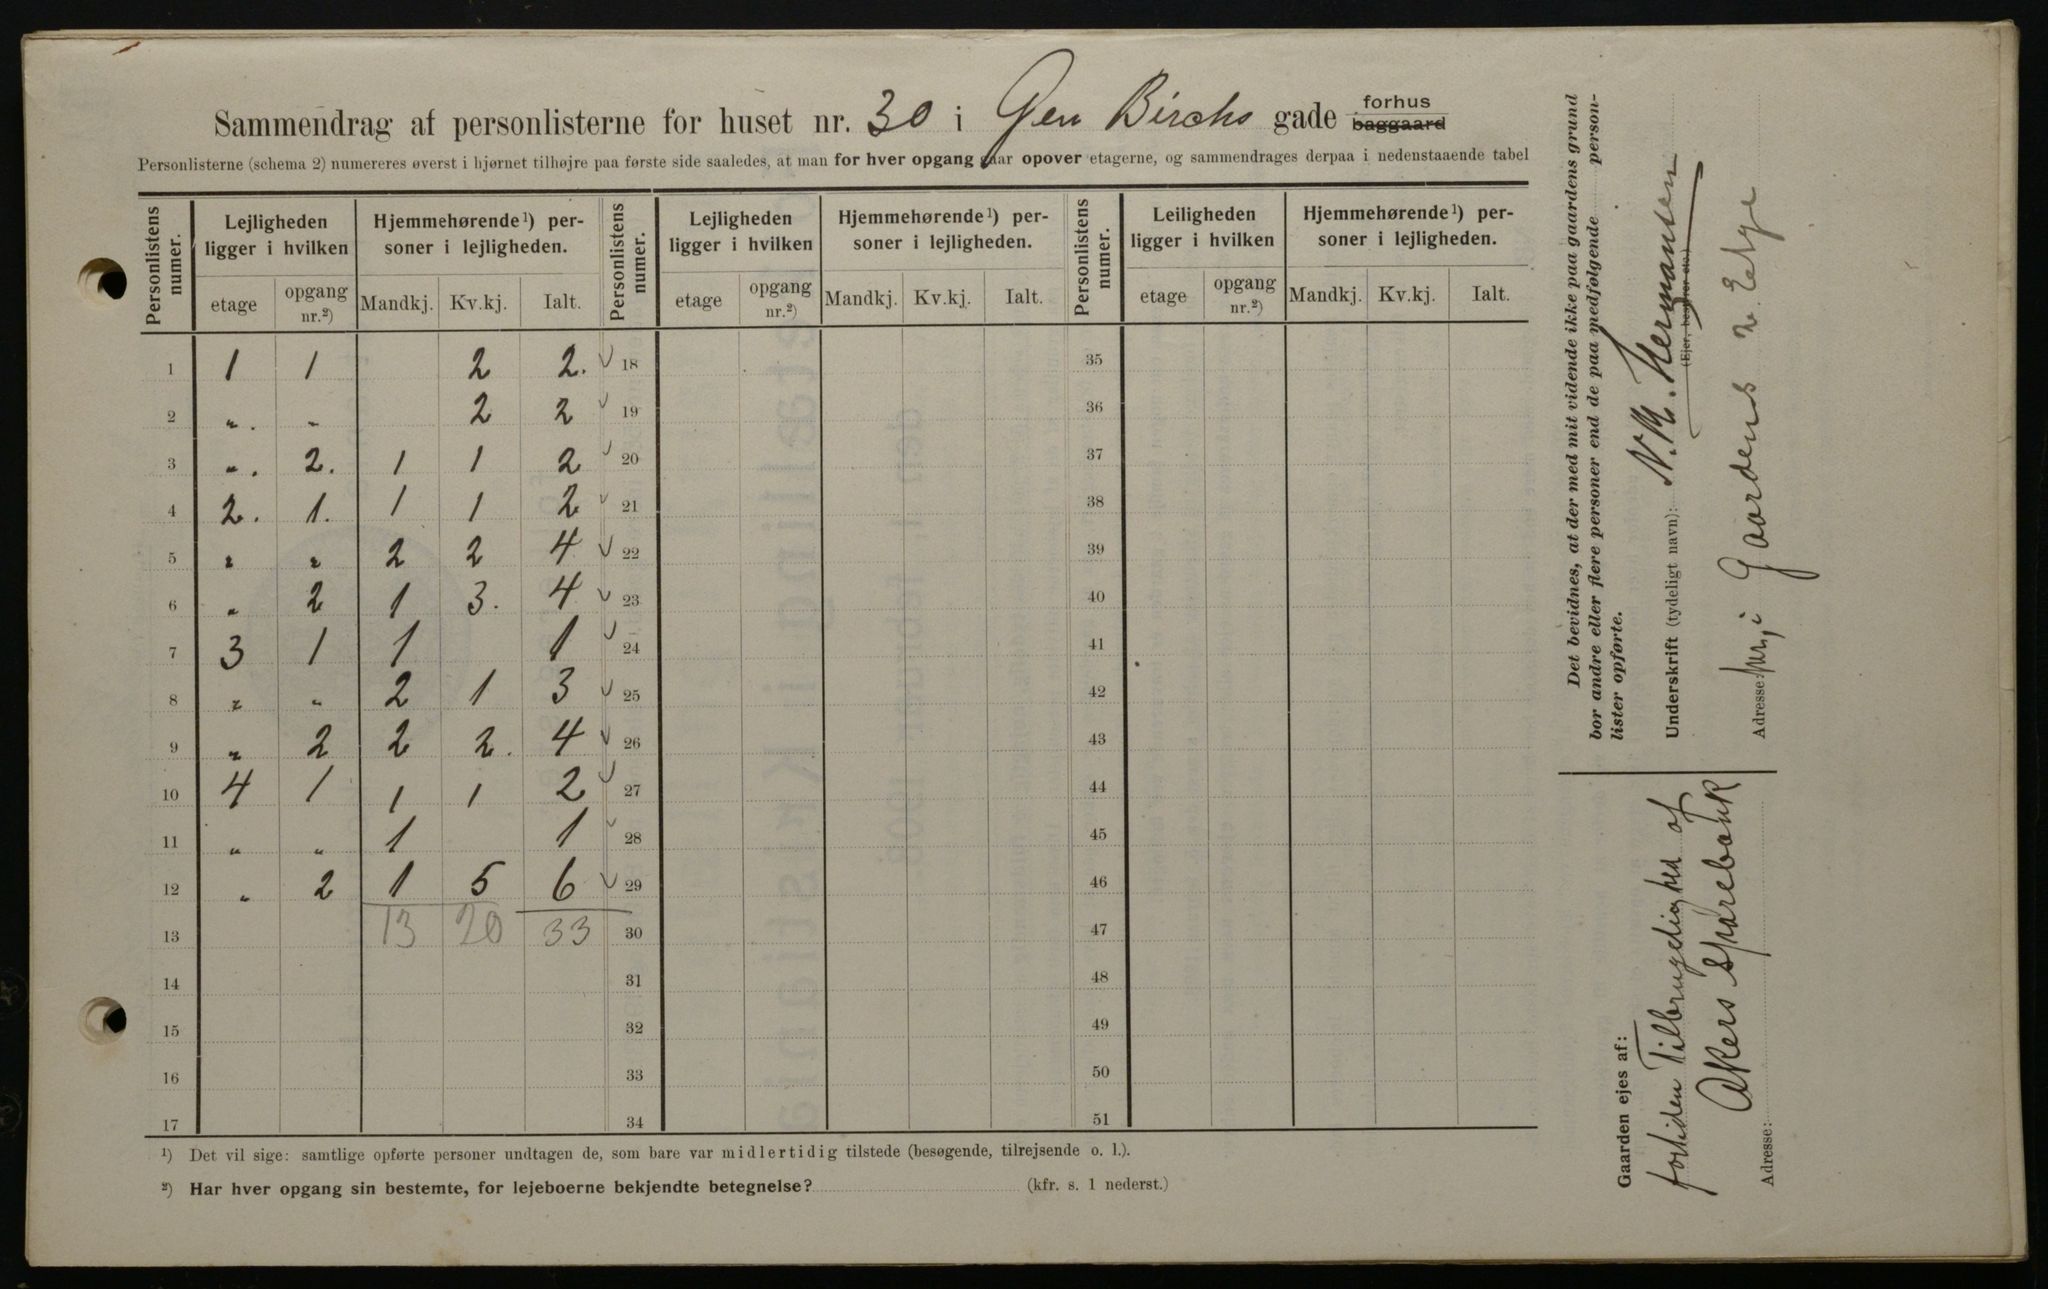 Sammendrag af personlisterne for huset nr. 30 i Gen Birchs gade forhus baggaard
Personlisterne (schema 2) numereres øverst i hjørnet tilhøjre paa første side saaledes, at man for hver opgang gaar opover etagerne, og sammendrages derpaa i nedenstaaende tabel
Personlistens numer. Lejligheden ligger i hvilken Hjemmehørende¹) personer i lejligheden. Personlistens numer. Lejligheden ligger i hvilken Hjemmehørende¹) personer i lejligheden. Personlistens numer. Leiligheden ligger i hvilken Hjemmehørende¹) personer i lejligheden.
etage opgang nr.²) Mandkj. Kv.kj. Ialt. etage opgang nr.²) Mandkj. Kv.kj. Ialt. etage opgang nr.²) Mandkj. Kv.kj. Ialt.
1 1 1 2 2. 18 35
2 „. „ 2 2 19 36
3 „. 2. 1 1 2 20 37
4 2. 1. 1 1 2 21 38
5 „ „ 2 2 4 22 39
6 „ 2 1 3. 4 23 40
7 3 1 1 1 24 41
8 „ „ 2 1 3 25 42
9 „ 2 2 2. 4 26 43
10 4 1 1 1 2 27 44
11 „ „ 1 1 28 45
12 „ 2 1 5 6 29 46
13 13 20 33 30 47
14 31 48
15 32 49
16 33 50
17 34 51
¹) Det vil sige: samtlige opførte personer undtagen de, som bare var midlertidig tilstede (besøgende, tilrejsende o. l.).
²) Har hver opgang sin bestemte, for lejeboerne bekjendte betegnelse? (kfr. s. 1 nederst.)
Det bevidnes, at der med mit vidende ikke paa gaardens grund
bor andre eller flere personer end de paa medfølgende person-
lister opførte.
Underskrift (tydeligt navn): N. M. Hermansen
(Ejer, bestyrer etc.)
Adresse: i Gaardens 2. Etage
Gaarden ejes af:
fortiden Tilbrugelighed af
Akers Sparebank
Adresse: